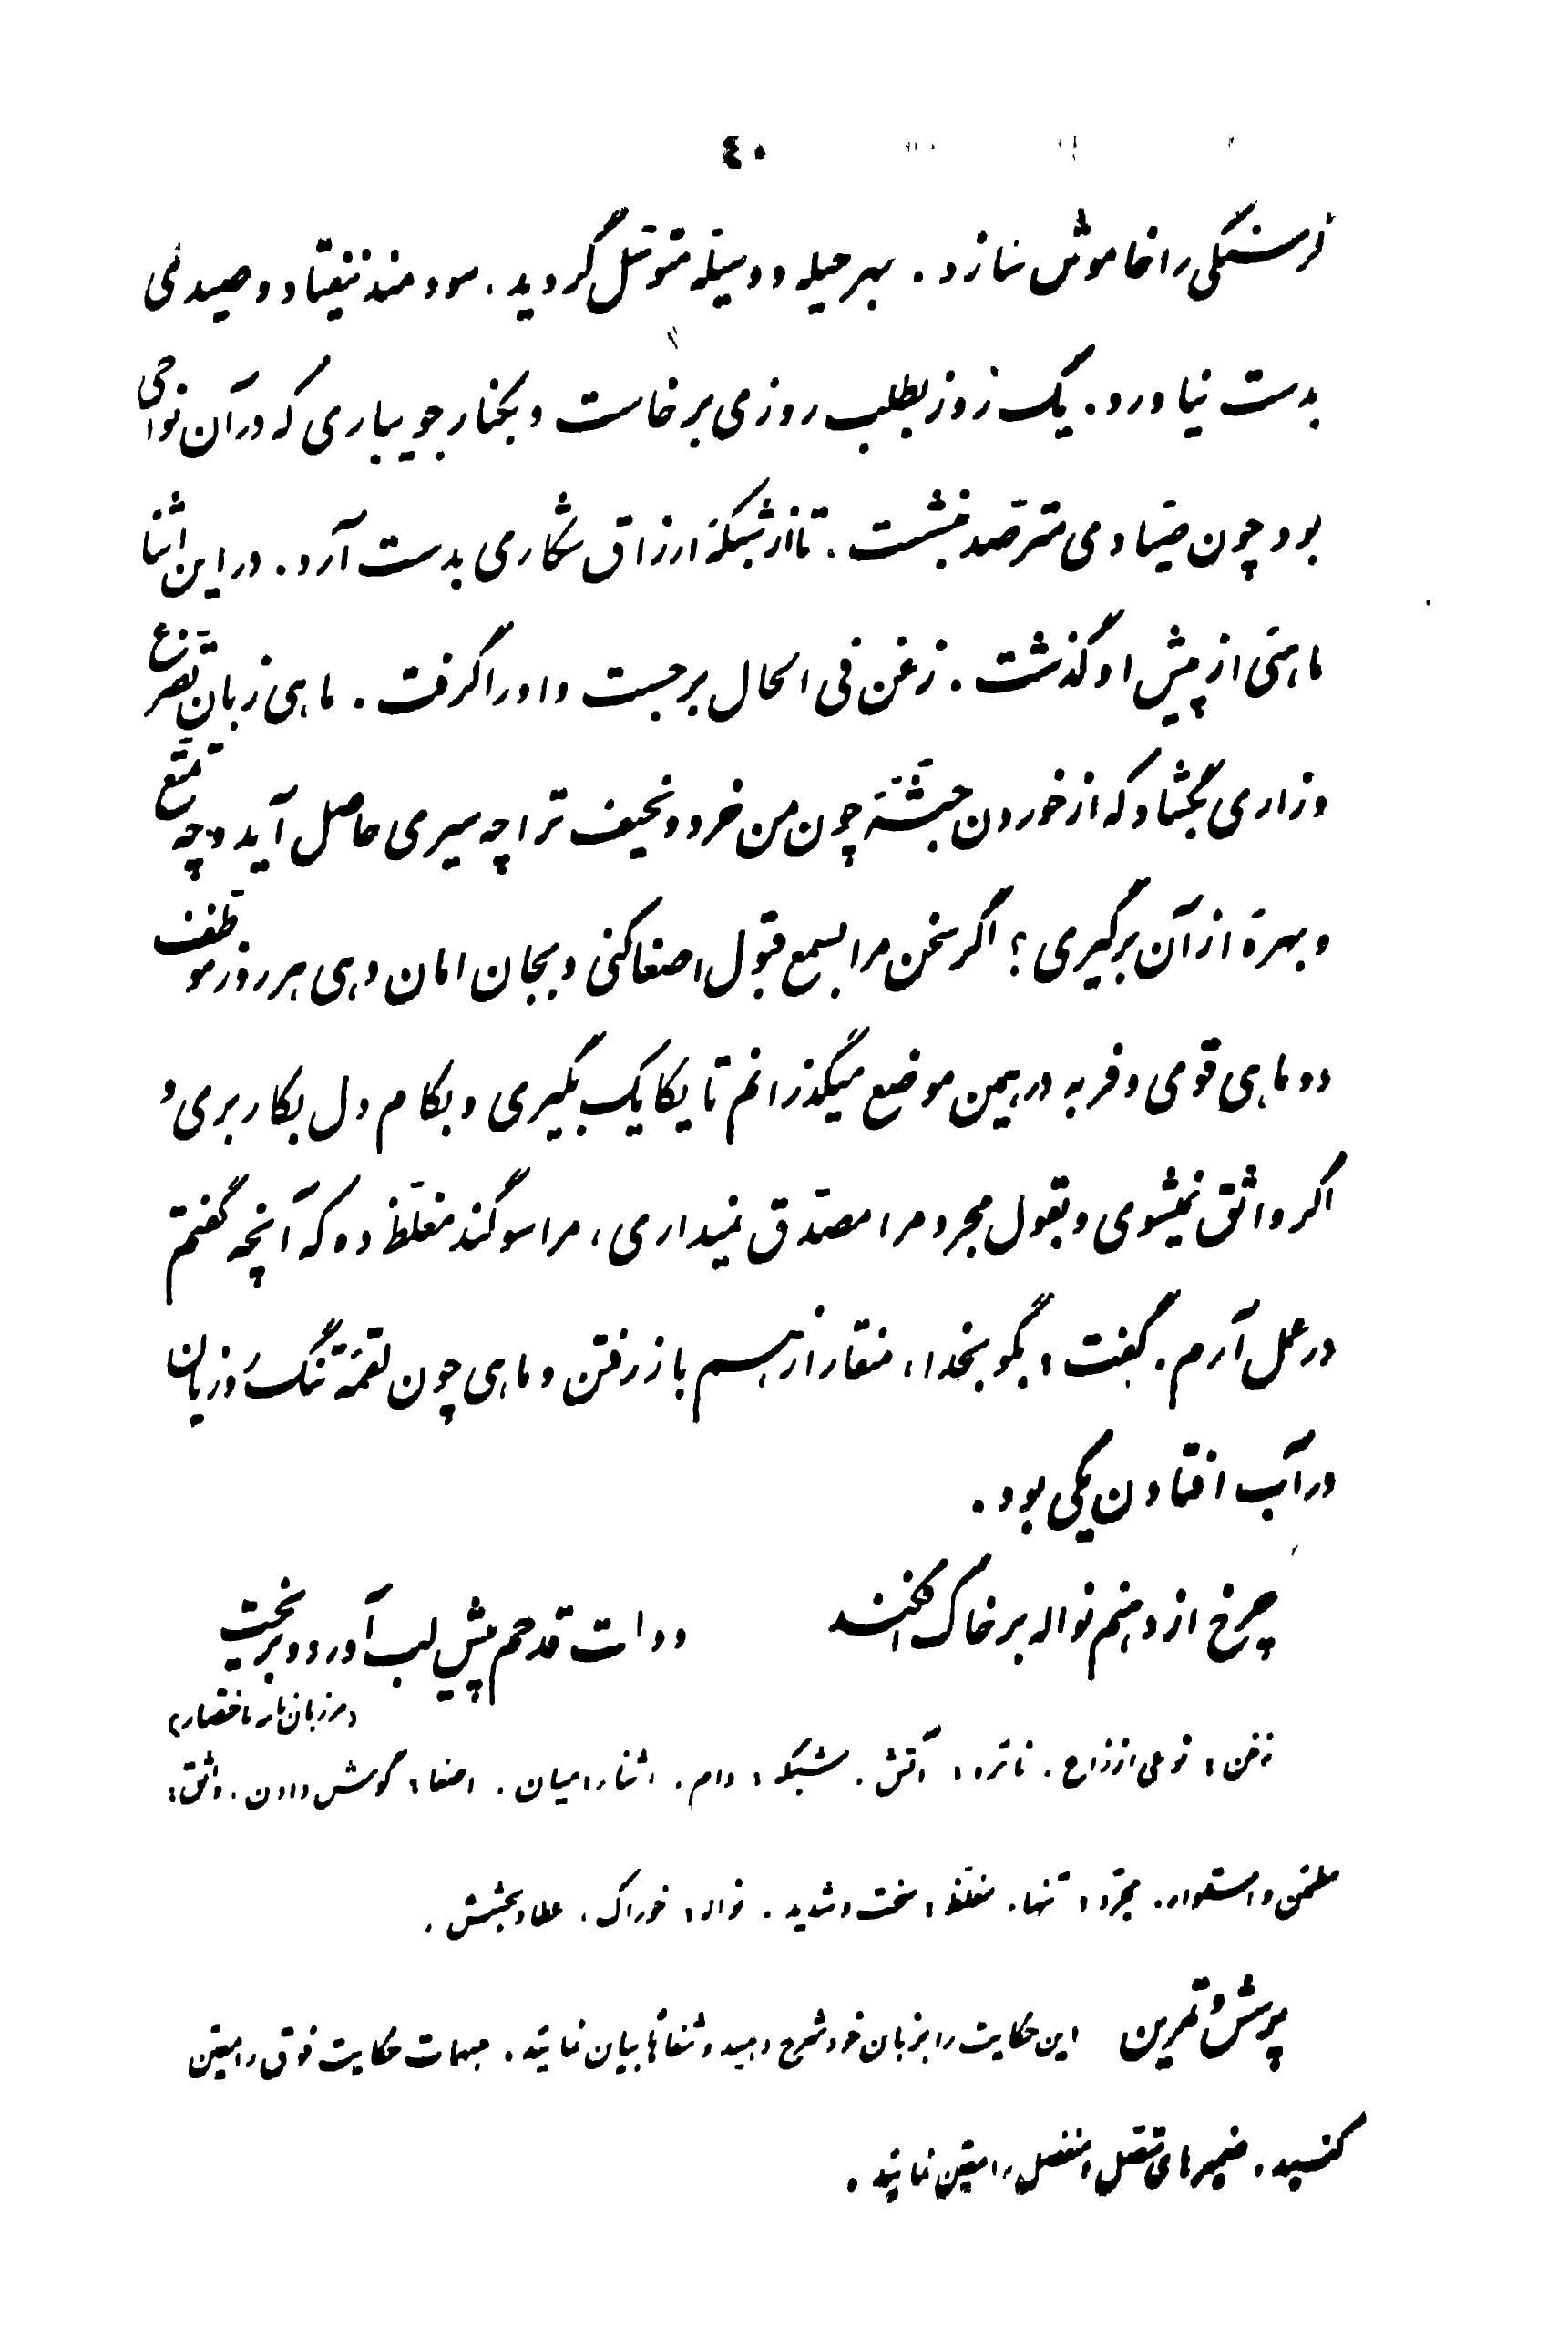 ٤٠
گرسنگی را خاموش سازد. بهر حیله و وسیله متوسل گردید. سودمند نیفتاد و صیدی
بدست نیاورد. یک روز بطلب روزی برخاست و بکنار جویباری که در آن نواحی
بود چون صیادی مترصد بنشست. تا از شبکهٔ ارزاق شکاری بدست آرد. در این اثنا
ماهئی از پیش او گذشت. زغن فی الحال برجست و او را گرفت. ماهی زبان تضرع
و زاری بگشاد که از خوردن جثهٔ چون من خرد و نحیف ترا چه سیری حاصل آید و چه تمتع
و بهرهٔ از آن برگیری؟ اگر سخن مرا بسمع قبول اصغا کنی و بجان امان دهی هر روز موظف
دو ماهی قوی و فربه در همین موضع میگذرانم تا یکایک بگیری و بکام دل بکار بری و
اگر واثق نمیشوی و بقول مجرد مرا مصدق نمیداری، مرا سوگند مغلظ ده که آنچه گفتم
در عمل آرم. گفت: بگو بخدا، منقار از هم باز رفتن و ماهی چون لقمهٔ تنگ روزیان
در آب افتادن یکی بود.
چرخ از دهنم نواله بر خاک افکند دولت قدحم پیش لب آورد و بریخت
(مرزبان نامه باختصار)
زغن: نوعی از زاغ. نائره: آتش. شبکه: دام. اثنا: میان. اصغا: گوش دادن. واثق:
مطمئن و استوار. مجرد: تنها. مغلظ: سخت و شدید. نواله: خوراک، عطا و بخشش.
پرسش و تمرین این حکایت را بزبان خود شرح دهید و شفاهاً بیان نمائید. مبهمات حکایت فوق را معین
کنید. ضمیرهای متصل و منفصل را معین نمائید.